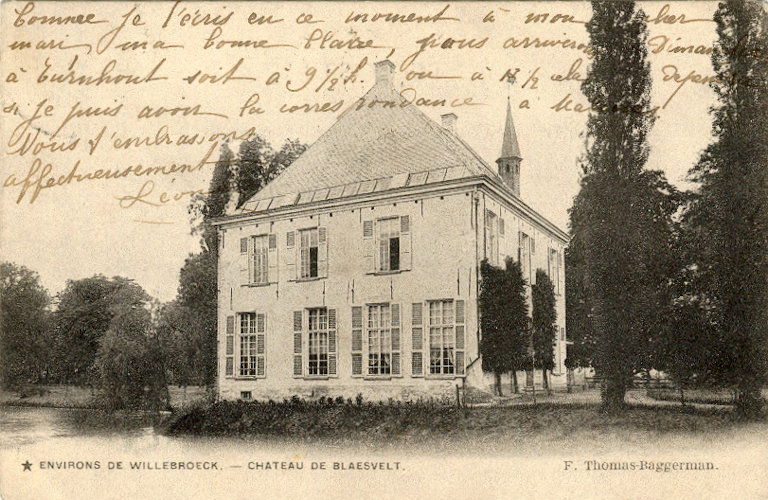 Comme je t'écris en ce moment à mon cher
mari, ma bonne Claire, nous arriverons Dimanche
à Turnhout soit à 9½ h. ou à 1½ cela dépend
si je puis avoir la correspondance à Malines
Vous t'embrassons
affectueusement
Léon
★ ENVIRONS DE WILLEBROECK. — CHATEAU DE BLAESVELT.
F. Thomas-Baggerman.